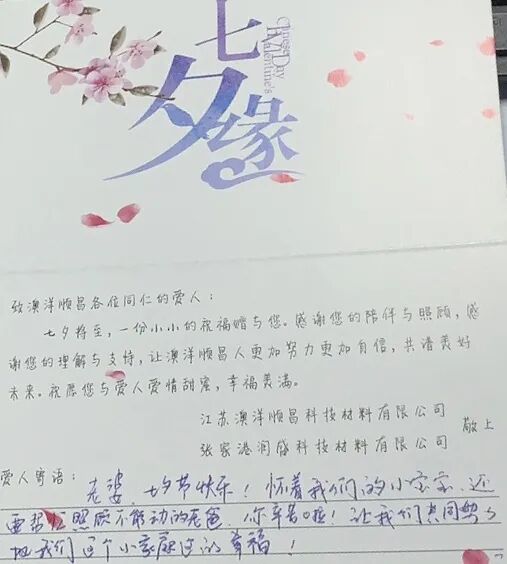 七夕缘
Chinese Valentine's Day
致澳洋顺昌各位同仁的爱人：
七夕将至，一份小小的祝福赠与您。感谢您的陪伴与照顾，感
谢您的理解与支持，让澳洋顺昌人更加努力更加自信，共谱美好
未来。祝愿您与爱人爱情甜蜜，幸福美满。
江苏澳洋顺昌科技材料有限公司
张家港润盛科技材料有限公司 敬上
爱人寄语：
老婆，七夕节快乐！怀着我们的小宝宝，还
要帮忙照顾不能动的老爸，你辛苦啦！让我们共同努力
把我们这个小家庭过的幸福！